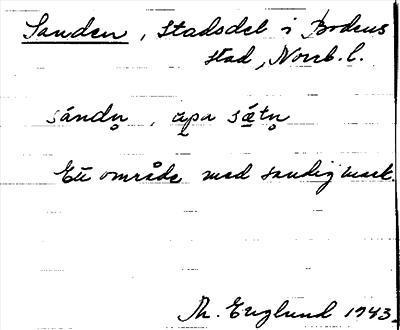 Sanden, Stadsdel i Bodens
stad, Norrb. l.
sándn̥, a̱pa sá̱tn̥
Ett område med sandig mark.
Th. Englund 1943.